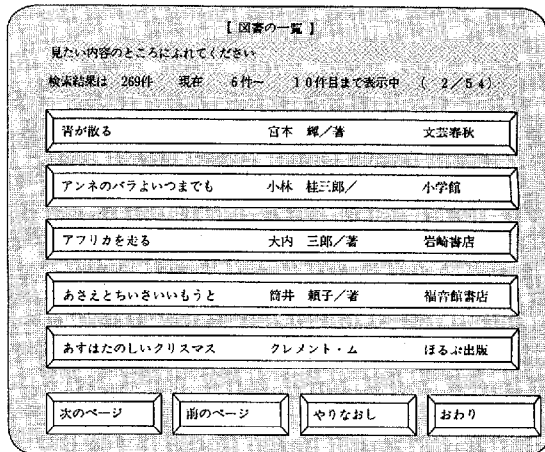 【 図書の一覧 】
見たい内容のところにふれてください
検索結果は 269件 現在 6件〜 10件目まで表示中 ( 2/54)
青が散る 宮本 輝/著 文芸春秋
アンネのバラよいつまでも 小林 桂三郎/ 小学館
アフリカを走る 大内 三郎/著 岩崎書店
あさえとちいさいいもうと 筒井 頼子/著 福音館書店
あすはたのしいクリスマス クレメント・ム ほるぷ出版
次のページ 前のページ やりなおし おわり